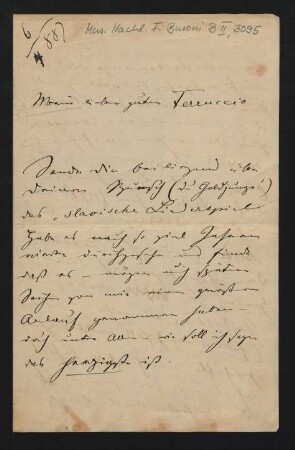 6/4 887
Mus. Nachl. F. Busoni B II, 3095
Mein lieber guter Ferruccio
Sende Dir beiliegend über
Deinen Wunsch (Du Goldjunge!)
das „slavische Liederspiel
habe es nach so viel Jahren
wieder durchgesehen und finde
daß es – mögen auch spätere
Sachen von mir einen größeren
Anlauf genommen haben –
doch unter allen – wie soll ich sagen
das herzigste ist.